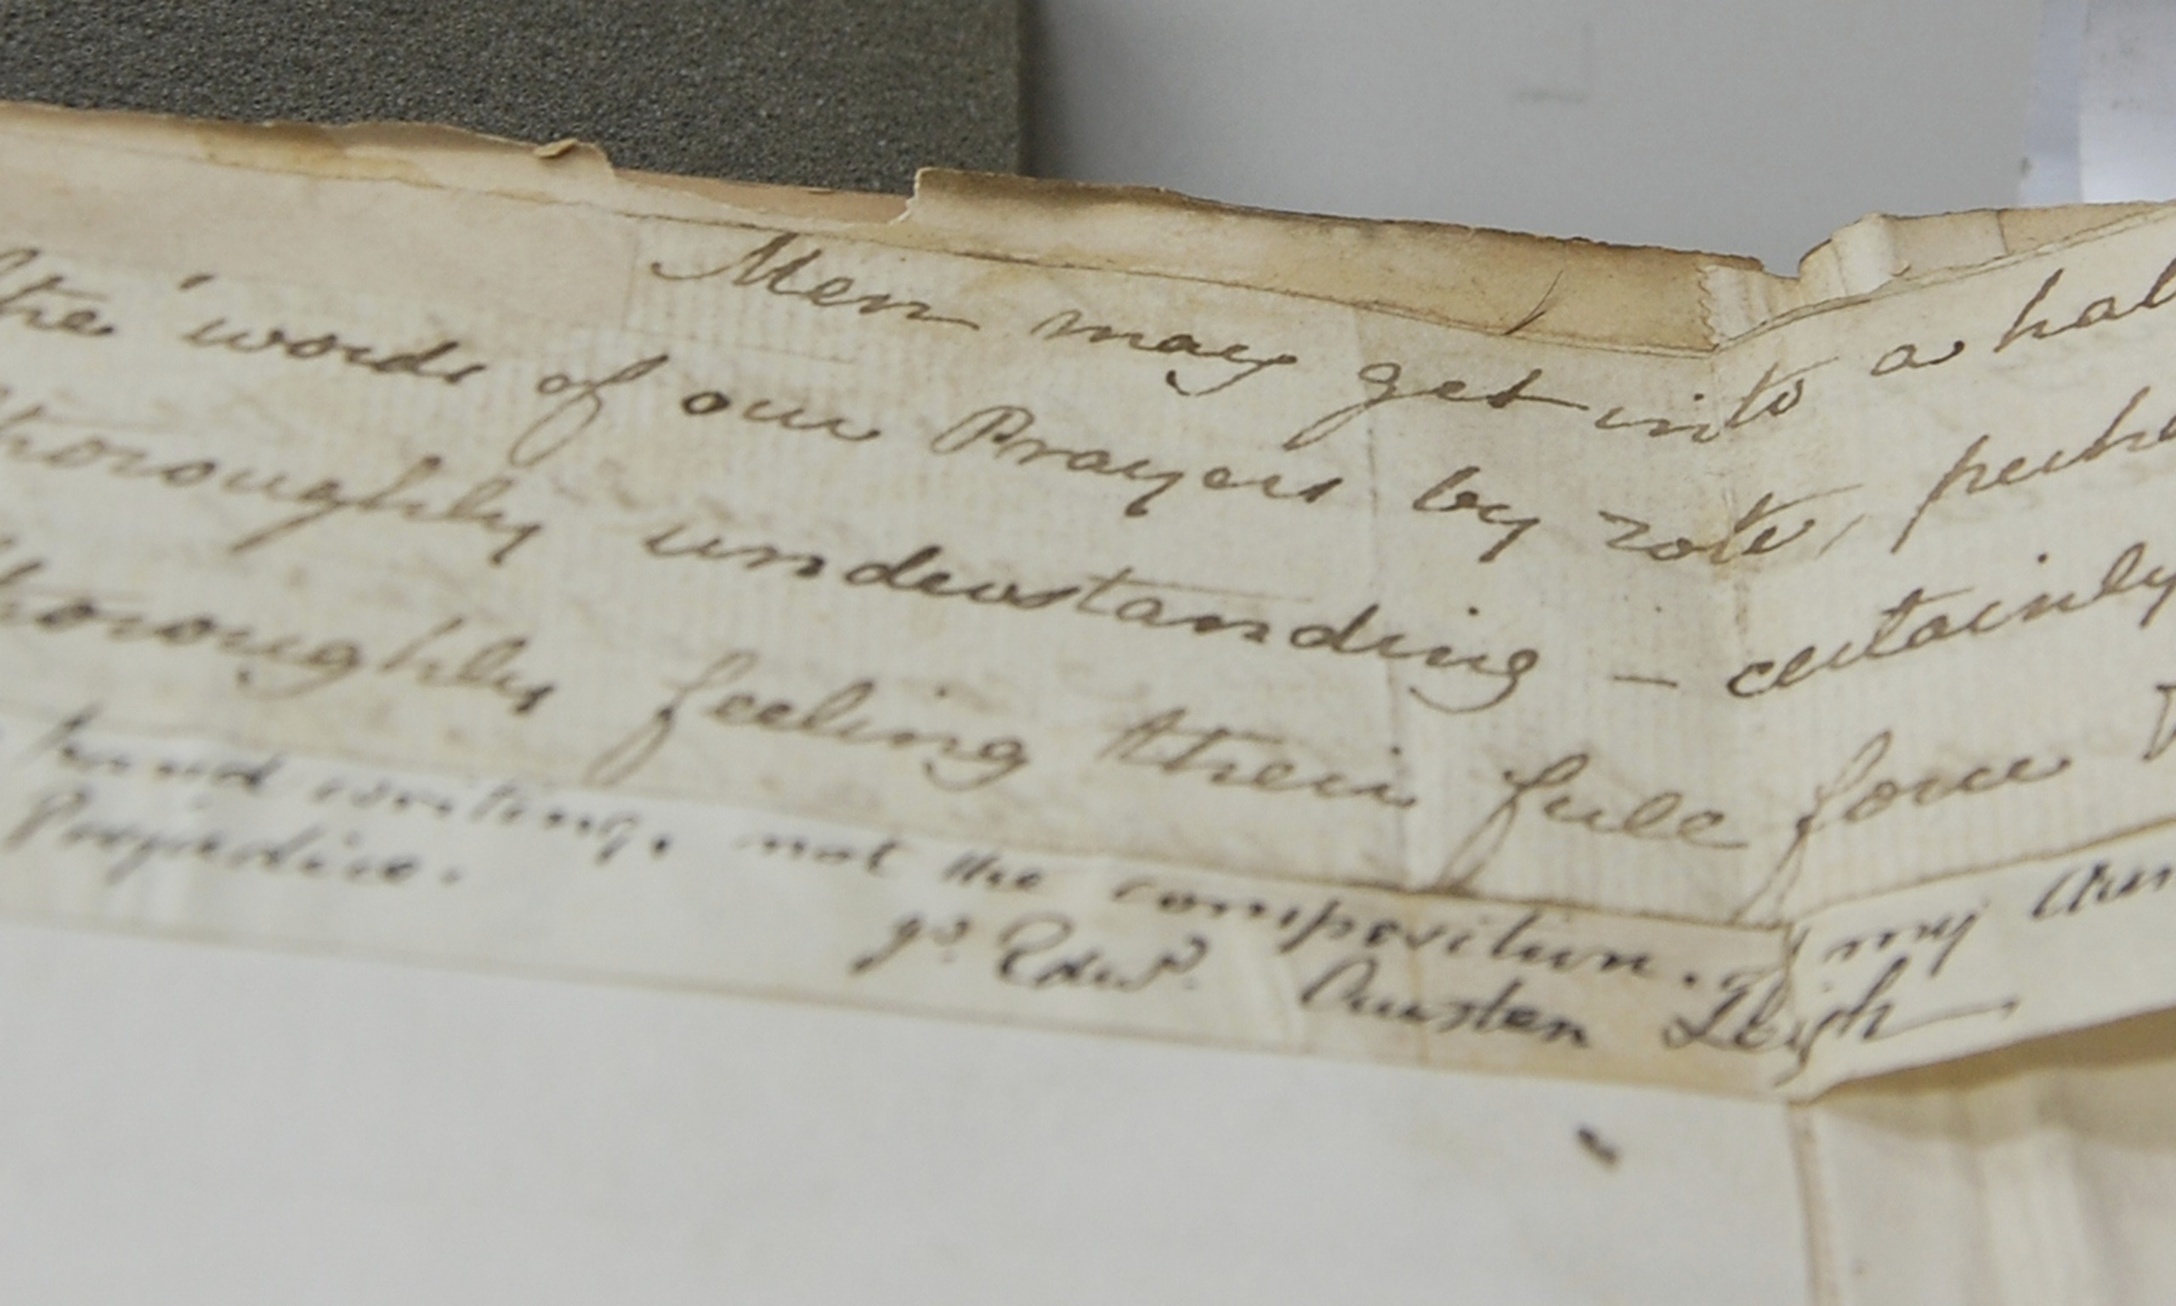 Men may get into a hab
the words of our Prayers by rote, perha
thoroughly understanding — certainly
thoroughly feeling their full force
hand writing, not the composition of my Aun
Prejudice.
Js. Edwd. Austen Leigh